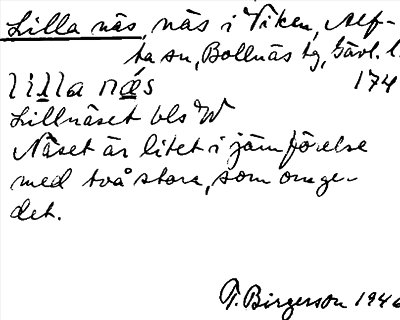 Lilla näs, näs i Viken, Alf-
ta sn, Bollnäs tg, Gävl. l.
lilla näs 174
Lillnäset bls W
Näset är litet i jämförelse
med två stora, som omge-
det.
T. Birgerson 1946